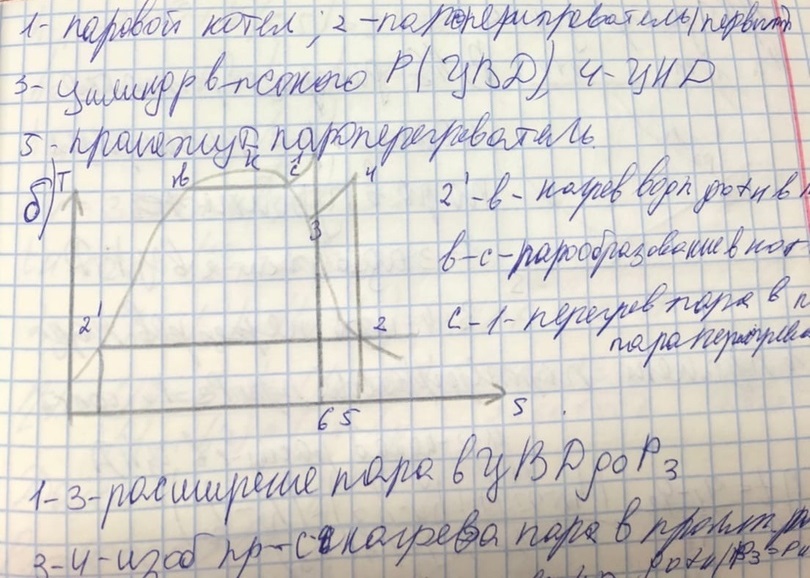 1- паровой котел; 2-пароперегреватель(первый
3- цилиндр высокого P(ЦВД) 4-ЦНД
5- промежут пароперегреватель
б) T в к с 1 4
2'-в- нагрев воды до tн в
3
в-с-парообразование в кот
2' 2
с-1-перегрев пара в п
пароперегрева
6 5 S
1-3-расширение пара в ЦВД до P3
3-4-изоб пр-с нагрева пара в пром